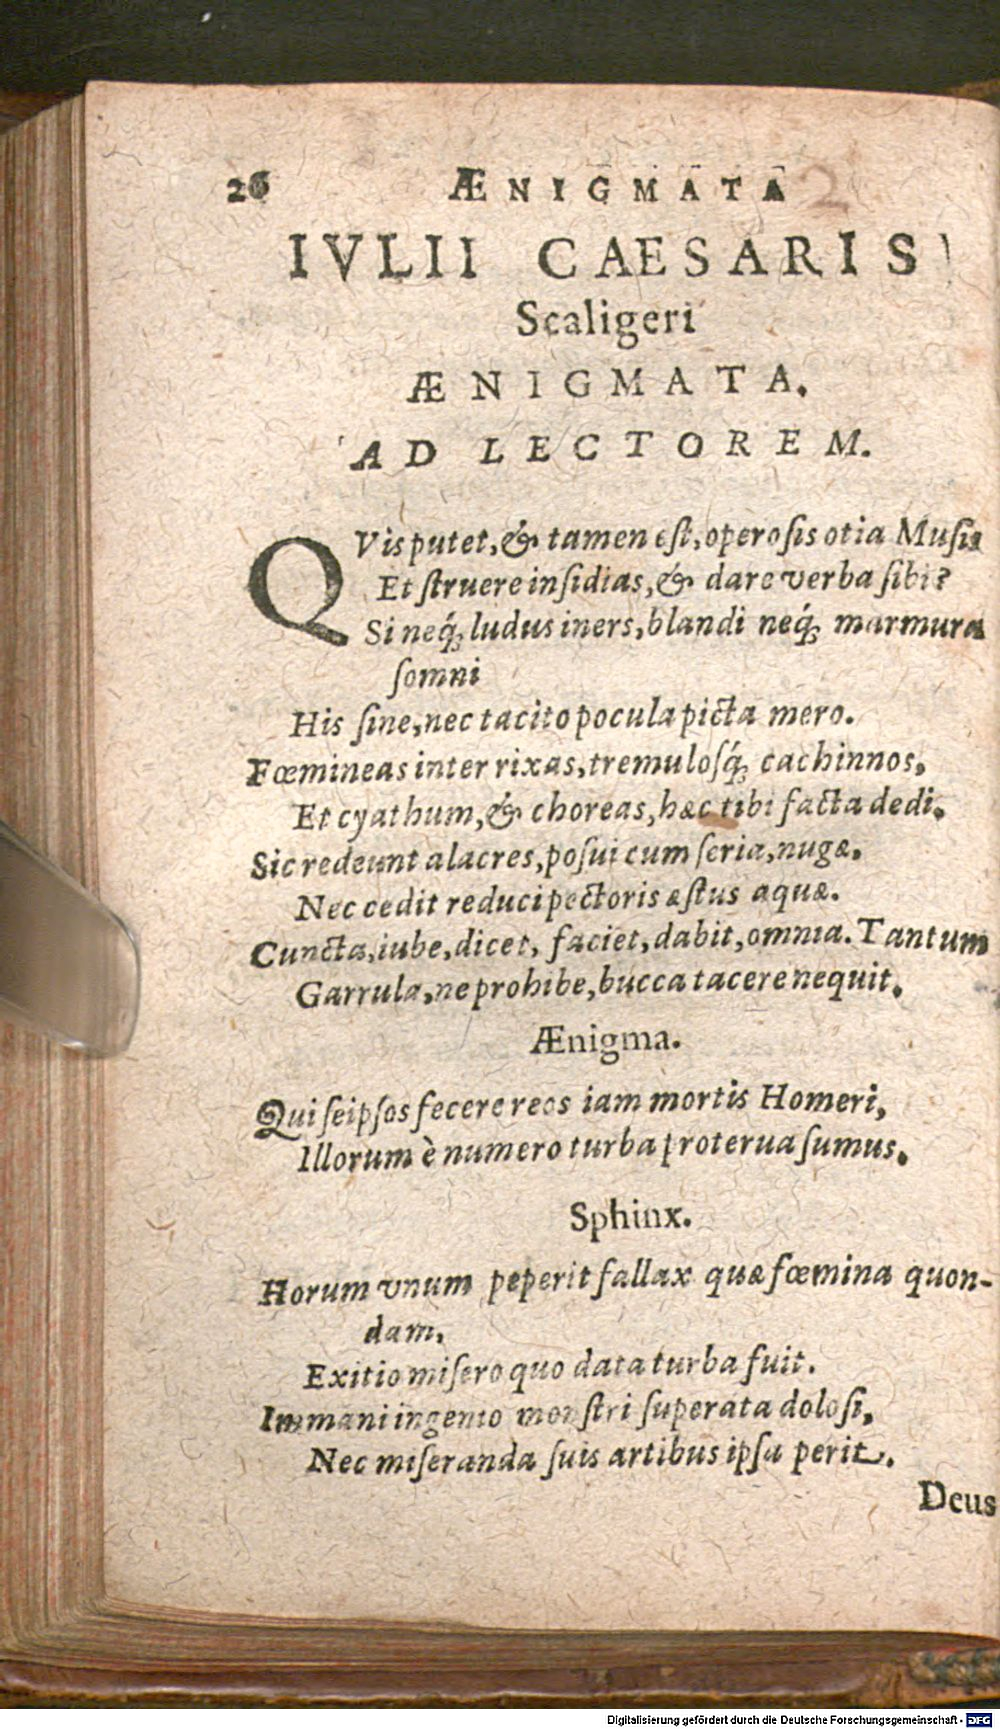 26 ÆNIGMATA
IVLII CAESARIS
Scaligeri
ÆNIGMATA.
AD LECTOREM.
QVis putet, & tamen est, operosis otia Musis
Et struere insidias, & dare verba sibi?
Si neq́; ludus iners, blandi neq́; marmura
somni
His sine, nec tacito pocula picta mero.
Fœmineas inter rixas, tremulosq́; cachinnos,
Et cyathum, & choreas, hæc tibi facta dedi.
Sic redeunt alacres, posui cum seria, nugæ,
Nec cedit reduci pectoris æstus aquæ.
Cuncta, iube, dicet, faciet, dabit, omnia. Tantum
Garrula, ne prohibe, bucca tacere nequit.
Ænigma.
Qui seipsos fecere reos iam mortis Homeri,
Illorum è numero turba proterua sumus.
Sphinx.
Horum vnum peperit fallax quæ fœmina quon-
dam,
Exitio misero quo data turba fuit.
Immani ingenio monstri superata dolosi,
Nec miseranda suis artibus ipsa perit.
Deus
Digitalisierung gefördert durch die Deutsche Forschungsgemeinschaft - DFG